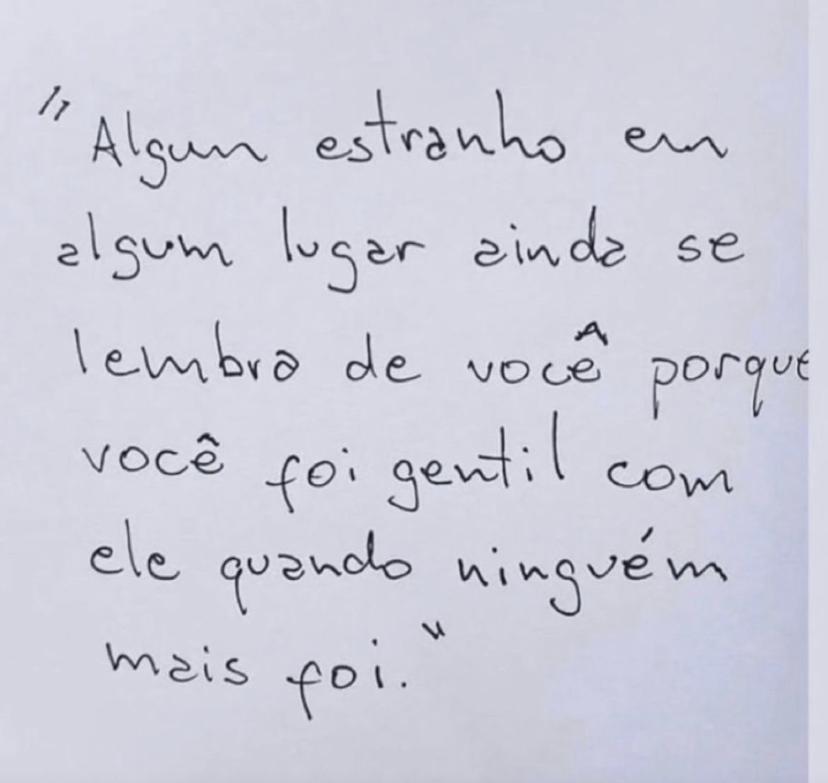 "Algum estranho em
algum lugar ainda se
lembra de você porque
você foi gentil com
ele quando ninguém
mais foi."